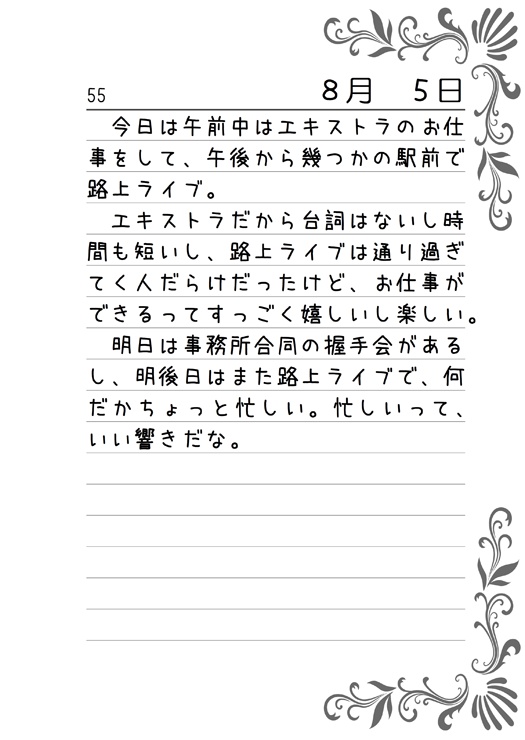 55
8月　5日
　今日は午前中はエキストラのお仕
事をして、午後から幾つかの駅前で
路上ライブ。
　エキストラだから台詞はないし時
間も短いし、路上ライブは通り過ぎ
てく人だらけだったけど、お仕事が
できるってすっごく嬉しいし楽しい。
　明日は事務所合同の握手会がある
し、明後日はまた路上ライブで、何
だかちょっと忙しい。忙しいって、
いい響きだな。